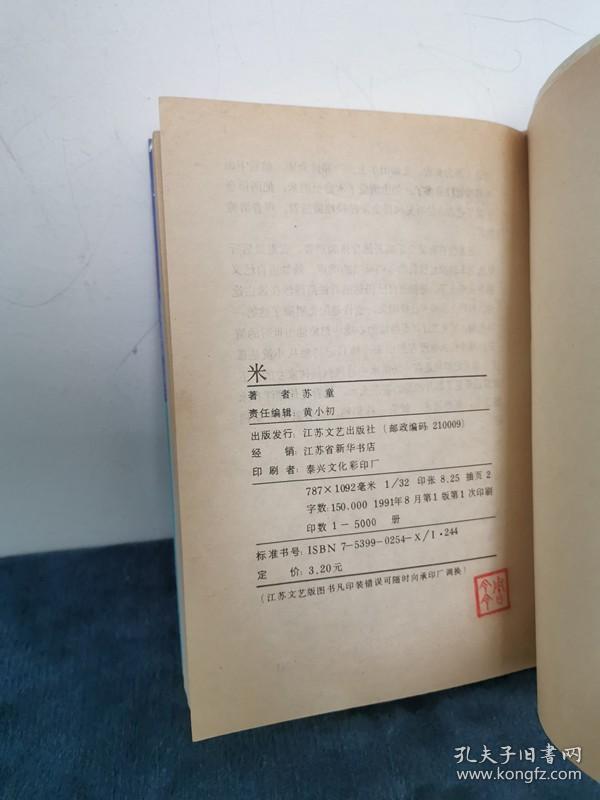 米
著 者：苏 童
责任编辑：黄小初
出版发行：江苏文艺出版社（邮政编码：210009）
经 销：江苏省新华书店
印 刷 者：泰兴文化彩印厂
787×1092毫米 1/32 印张 8.25 插页 2
字数：150,000 1991年8月第1版第1次印刷
印数 1－5000 册
标准书号：ISBN 7-5399-0254-X/I·244
定 价：3.20元
（江苏文艺版图书凡印装错误可随时向承印厂调换）
孔夫子旧书网
www.kongfz.com